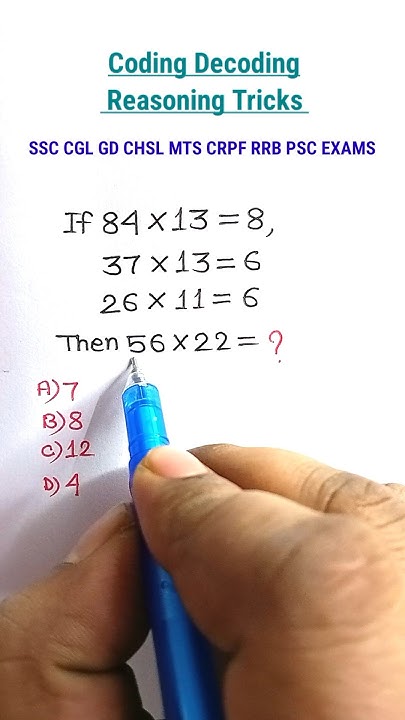 Coding Decoding
Reasoning Tricks
SSC CGL GD CHSL MTS CRPF RRB PSC EXAMS
If 84×13=8,
37×13=6
26×11=6
Then 56×22=?
A)7
B)8
C)12
D)4